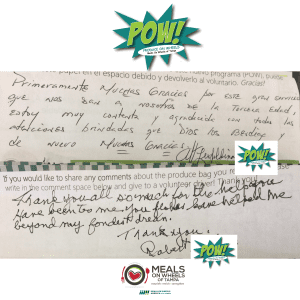 POW!
PRODUCE ON WHEELS
papel en el espacio debido y devolverlo al voluntario. Gracias!
nuevo programa (POW),
Primeramente Muchas Gracias por este gran servicio
que nos dan a nosotros de la Tercera Edad,
estoy muy contenta y agradecida con todas las
atenciones brindadas que Dios los Bendiga
de nuevo Muchas Gracias!
POW!
If you would like to share comments about the produce bag you
write in the comment space below and give to a volunteer driver! Thank you!
Thank you all so much for the help you
have been to me. You folks have helped me
beyond my fondest dream.
Thank you,
Robert
POW!
MEALS
ON WHEELS
OF TAMPA